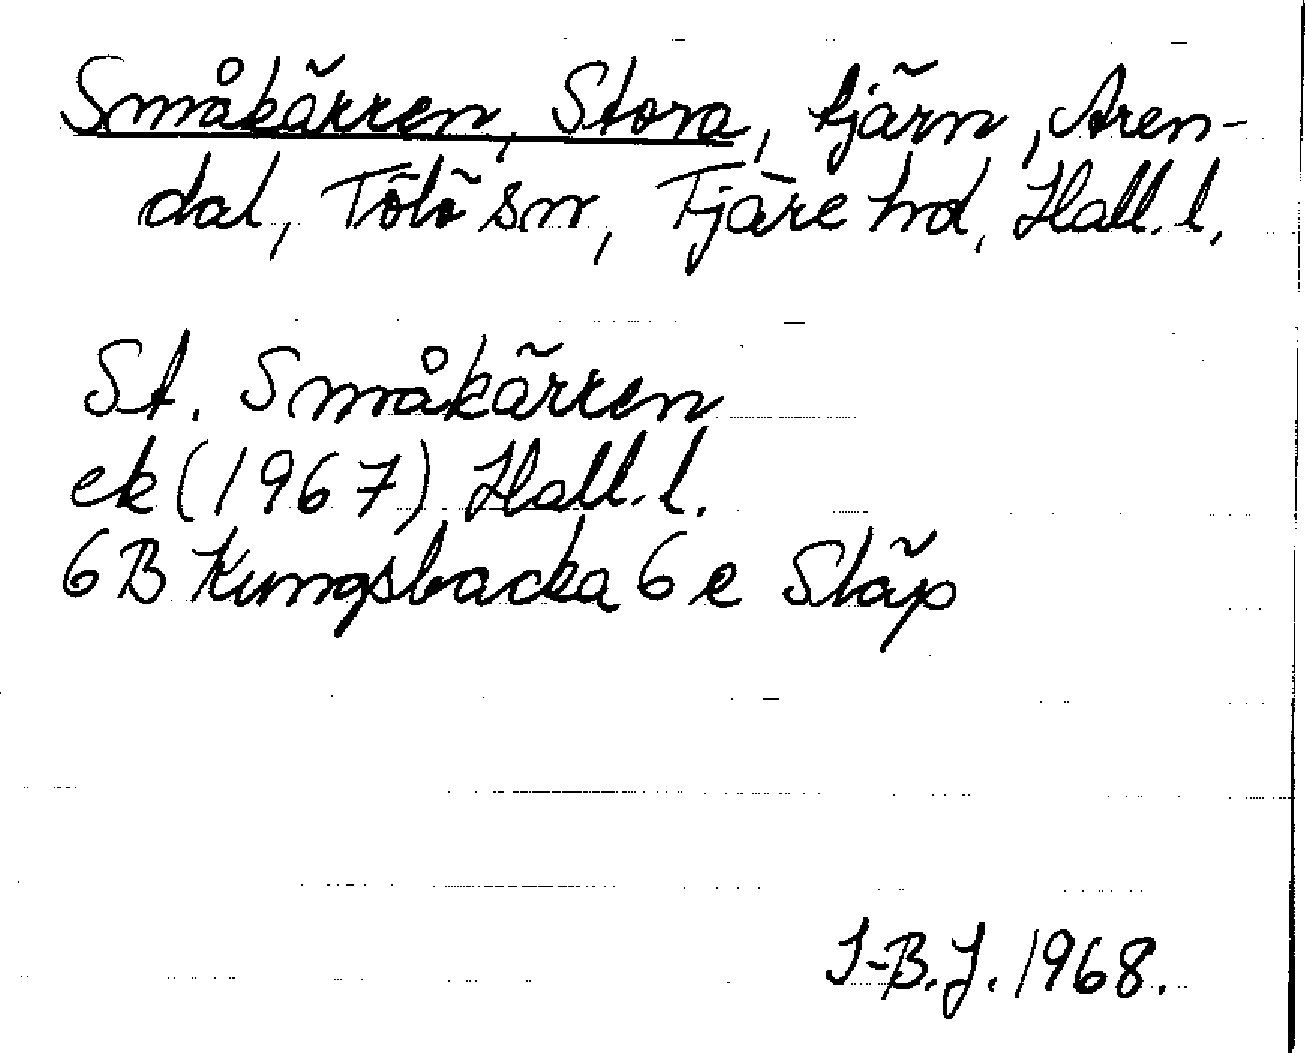 Småkärren, Stora, tjärn, Aren-
dal, Tölö sn, Fjäre hd, Hall. l.
St. Småkärren
ek (1967) Hall. l.
6B Kungsbacka 6 e Släp
I-B.J. 1968.